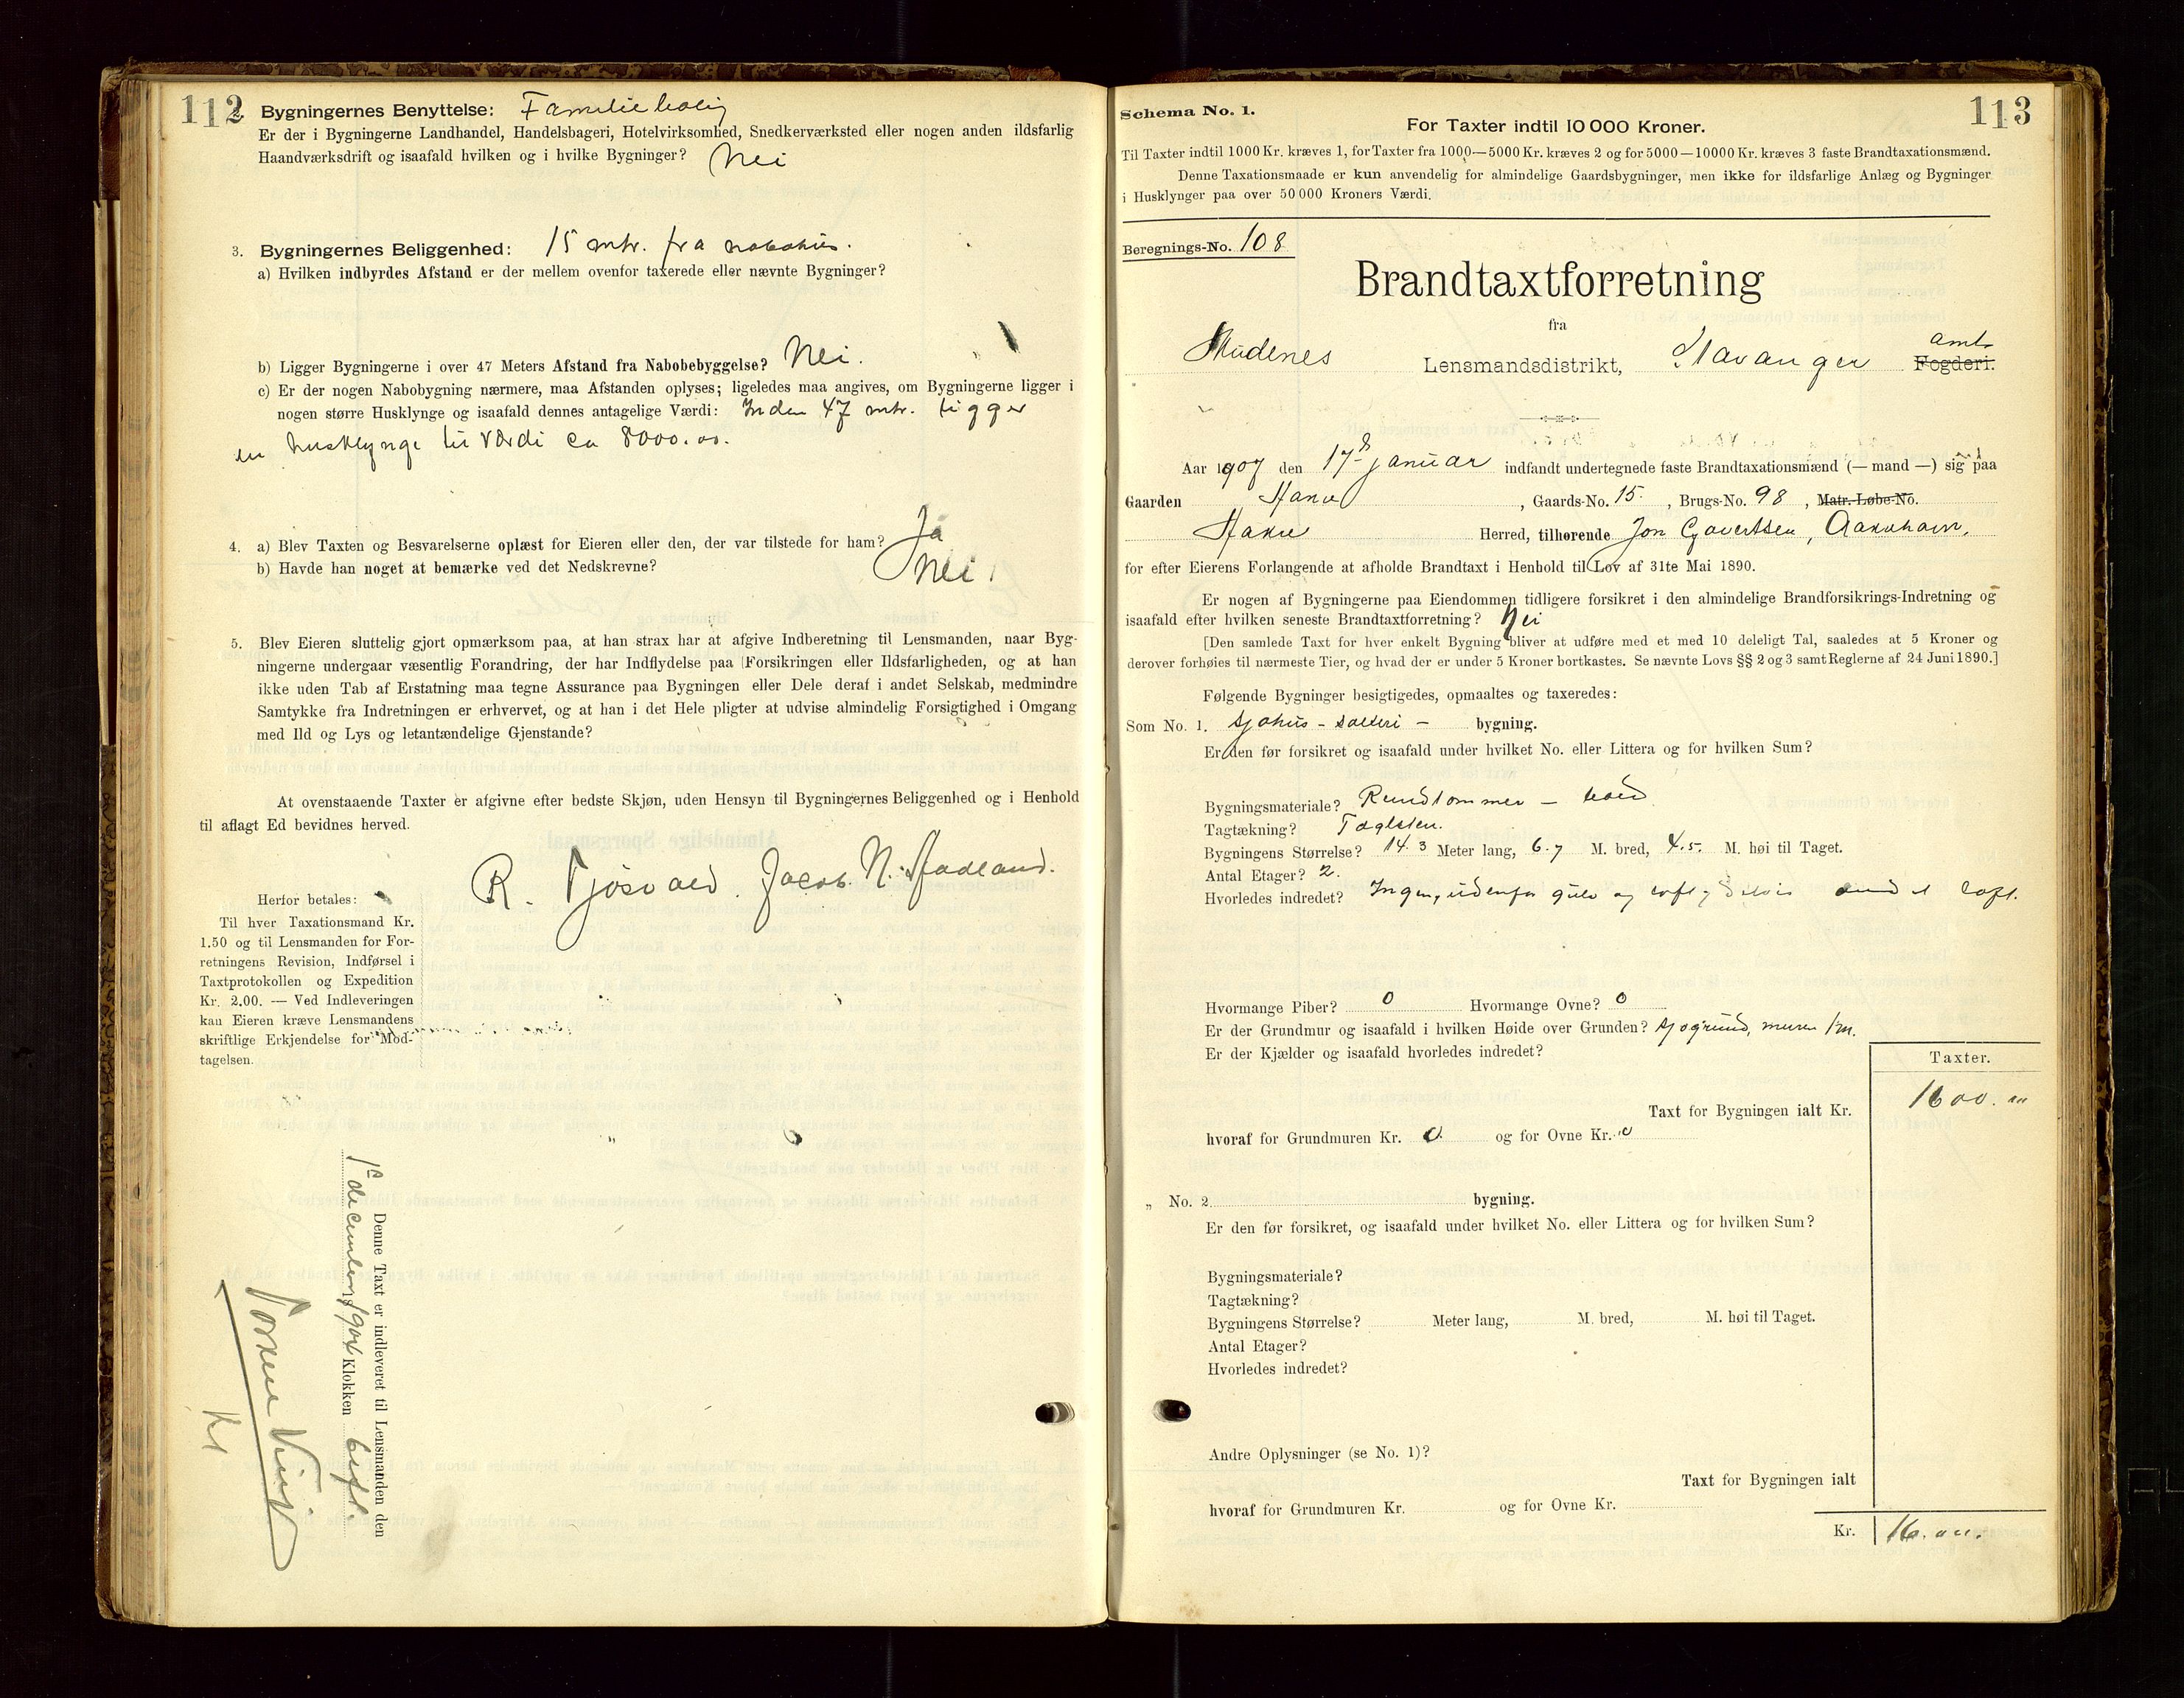 112
2. Bygningernes Benyttelse: Familiebolig
Er der i Bygningerne Landhandel, Handelsbageri, Hotelvirksomhed, Snedkerværksted eller nogen anden ildsfarlig
Haandværksdrift og isaafald hvilken og i hvilke Bygninger? Nei
3. Bygningernes Beliggenhed: 15 mtr. fra nabohus.
a) Hvilken indbyrdes Afstand er der mellem ovenfor taxerede eller nævnte Bygninger?
b) Ligger Bygningerne i over 47 Meters Afstand fra Nabobebyggelse? Nei.
c) Er der nogen Nabobygning nærmere, maa Afstanden oplyses; ligeledes maa angives, om Bygningerne ligger i
nogen større Husklynge og isaafald dennes antagelige Værdi: Inden 47 mtr. ligger
en husklynge til værdi ca 8000.00.
4. a) Blev Taxten og Besvarelserne oplæst for Eieren eller den, der var tilstede for ham? Ja
b) Havde han noget at bemærke ved det Nedskrevne? Nei
5. Blev Eieren sluttelig gjort opmærksom paa, at han strax har at afgive Indberetning til Lensmanden, naar Byg-
ningerne undergaar væsentlig Forandring, der har Indflydelse paa Forsikringen eller Ildsfarligheden, og at han
ikke uden Tab af Erstatning maa tegne Assurance paa Bygningen eller Dele deraf i andet Selskab, medmindre
Samtykke fra Indretningen er erhvervet, og at han i det Hele pligter at udvise almindelig Forsigtighed i Omgang
med Ild og Lys og letantændelige Gjenstande?
At ovenstaaende Taxter er afgivne efter bedste Skjøn, uden Hensyn til Bygningernes Beliggenhed og i Henhold
til aflagt Ed bevidnes herved.
R. Tjösvold. Jacob N. Stadland.
Herfor betales:
Til hver Taxationsmand Kr.
1.50 og til Lensmanden for For-
retningens Revision, Indførsel i
Taxtprotokollen og Expedition
Kr. 2.00. — Ved Indleveringen
kan Eieren kræve Lensmandens
skriftlige Erkjendelse for Mod-
tagelsen.
Denne Taxt er indleveret til Lensmanden den
Klokken
113
Schema No. 1.
For Taxter indtil 10 000 Kroner.
Til Taxter indtil 1000 Kr. kræves 1, for Taxter fra 1000—5000 Kr. kræves 2 og for 5000—10000 Kr. kræves 3 faste Brandtaxationsmænd.
Denne Taxationsmaade er kun anvendelig for almindelige Gaardsbygninger, men ikke for ildsfarlige Anlæg og Bygninger
i Husklynger paa over 50 000 Kroners Værdi.
Beregnings-No. 108
Brandtaxtforretning
fra
amt
Skudenes Lensmandsdistrikt, Stavanger Fogderi.
Aar 1907 den 17de januar indfandt undertegnede faste Brandtaxationsmænd (— mand —) sig paa
Gaarden , Gaards-No. 15. , Brugs-No. 98 , Matr. Løbe-No.
Herred, tilhørende Jon Govertsen,
for efter Eierens Forlangende at afholde Brandtaxt i Henhold til Lov af 31te Mai 1890.
Er nogen af Bygningerne paa Eiendommen tidligere forsikret i den almindelige Brandforsikrings-Indretning og
isaafald efter hvilken seneste Brandtaxtforretning? Nei
[Den samlede Taxt for hver enkelt Bygning bliver at udføre med et med 10 deleligt Tal, saaledes at 5 Kroner og
derover forhøies til nærmeste Tier, og hvad der er under 5 Kroner bortkastes. Se nævnte Lovs §§ 2 og 3 samt Reglerne af 24 Juni 1890.]
Følgende Bygninger besigtigedes, opmaaltes og taxeredes:
Som No. 1. sjøhus - salteri - bygning.
Er den før forsikret og isaafald under hvilket No. eller Littera og for hvilken Sum?
Bygningsmateriale? Rundtømmer - bord
Tagtækning? Taglsten.
Bygningens Størrelse? 14.3 Meter lang, 6.7 M. bred, 4.5. M. høi til Taget.
Antal Etager? 2.
Hvorledes indredet? Ingen, udenfor gulv og loft, loft.
Hvormange Piber? 0 Hvormange Ovne? 0
Er der Grundmur og isaafald i hvilken Høide over Grunden? sjøgrund, muren 1m.
Er der Kjælder og isaafald hvorledes indredet?
Taxter.
Taxt for Bygningen ialt Kr. 1600.00
hvoraf for Grundmuren Kr. 0. og for Ovne Kr. 0
„ No. 2 bygning.
Er den før forsikret, og isaafald under hvilket No. eller Littera og for hvilken Sum?
Bygningsmateriale?
Tagtækning?
Bygningens Størrelse? Meter lang, M. bred, M. høi til Taget.
Antal Etager?
Hvorledes indredet?
Andre Oplysninger (se No. 1)?
Taxt for Bygningen ialt
hvoraf for Grundmuren Kr. og for Ovne Kr.
Kr.